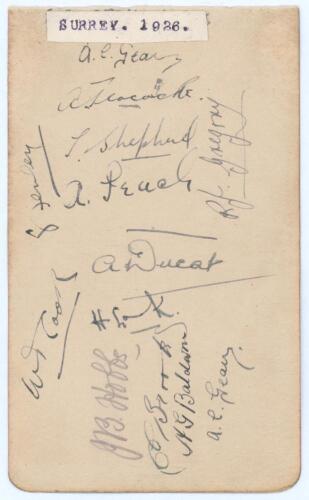 SURREY. 1926.
A.C. Geary
A Peacock.
T. Shepherd
A. Peach
R.J. Gregory
S Fenley
A Ducat
W T Cook
J B Hobbs
E W J Brooks
H G Baldwin
A. C. Geary.